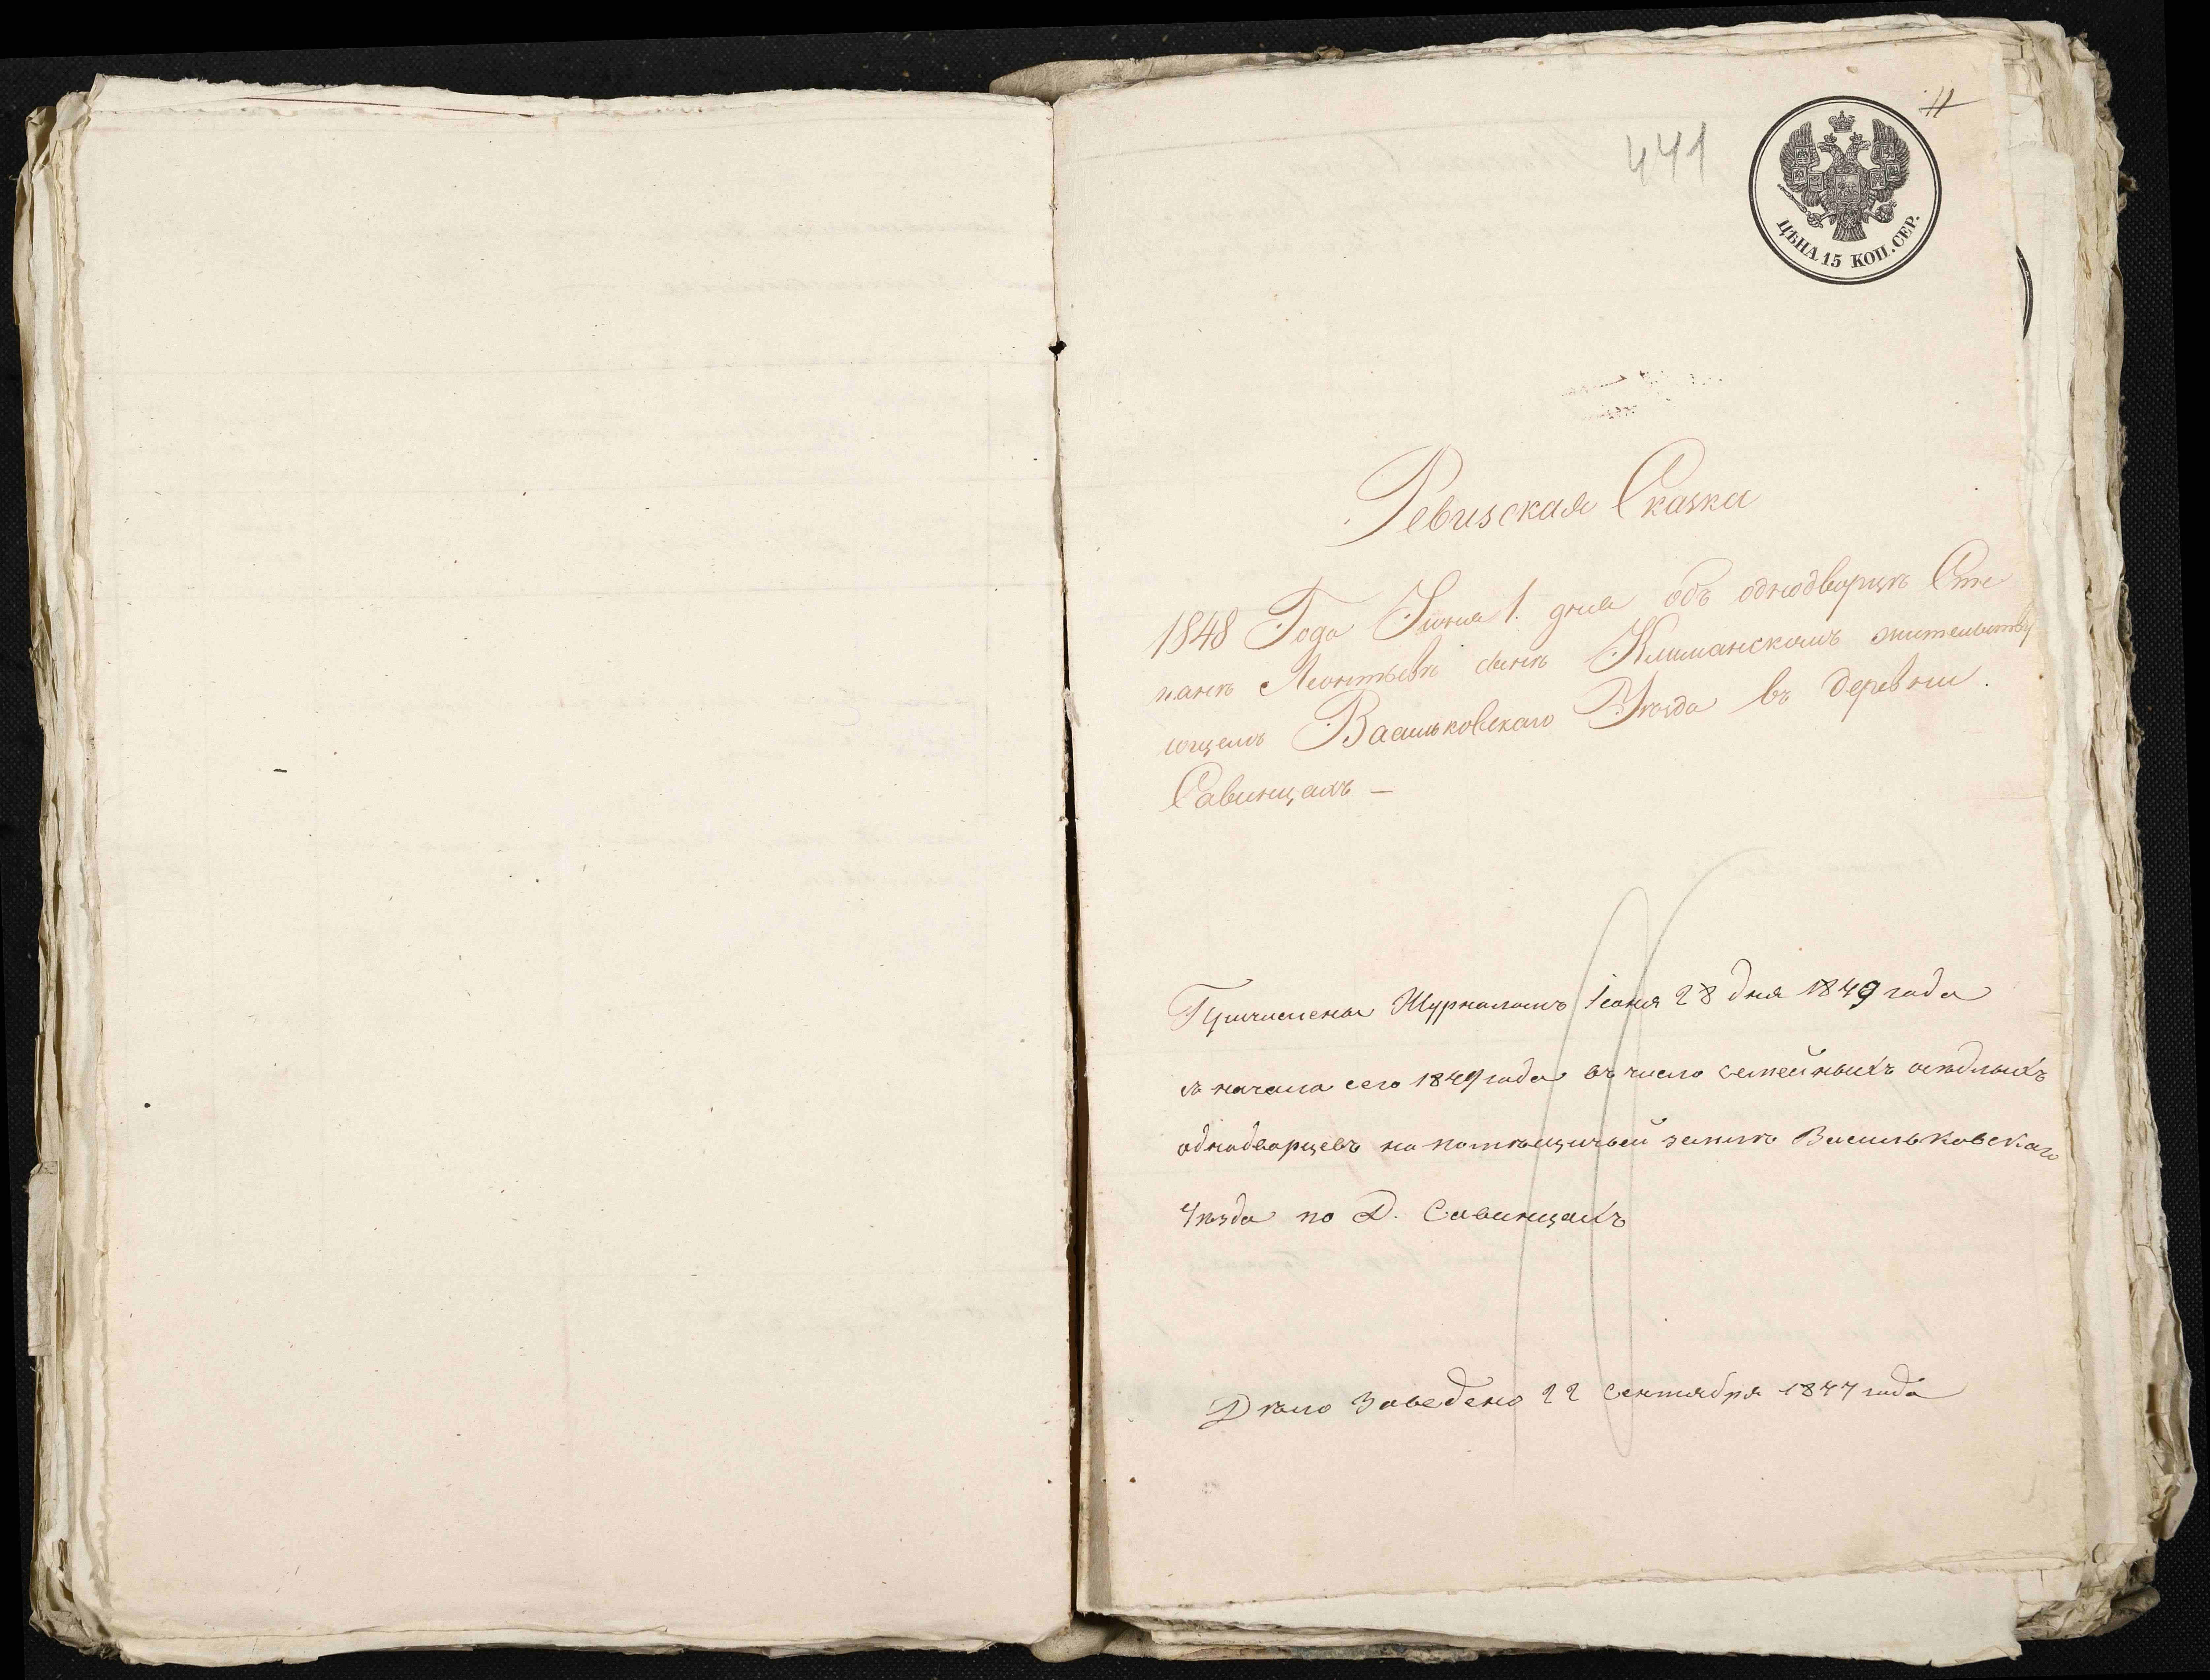 441
ЦѢНА 15 КОП. СЕР.
Ревизская Сказка
1848 Года Июня 1. дня объ однодворцѣ Сте
панѣ Леонтьевѣ сынѣ Климанскомъ жительству
ющемъ Васильковскаго Уѣзда въ деревни
Савинцахъ —
Причислены Журналомъ Іюня 28 дня 1849 года
съ начала сего 1849 года въ число семейныхъ осѣдлыхъ
однодворцевъ на помѣщичьей землѣ Васильковскаго
Уѣзда по Д. Савинцахъ
Дѣло Заведено 22 Сентября 1847 года